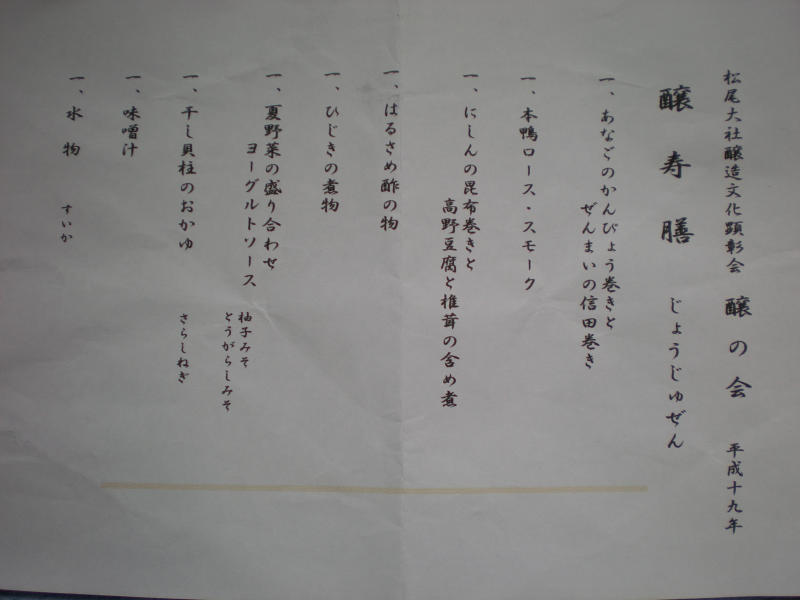 松尾大社醸造文化顕彰会 醸の会 平成十九年
醸寿膳 じょうじゅぜん
一、あなごのかんぴょう巻きと
ぜんまいの信田巻き
一、本鴨ロース・スモーク
一、にしんの昆布巻きと
高野豆腐と椎茸の含め煮
一、はるさめ酢の物
一、ひじきの煮物
一、夏野菜の盛り合わせ
ヨーグルトソース
柚子みそ
とうがらしみそ
一、干し貝柱のおかゆ さらしねぎ
一、味噌汁
一、水物 すいか